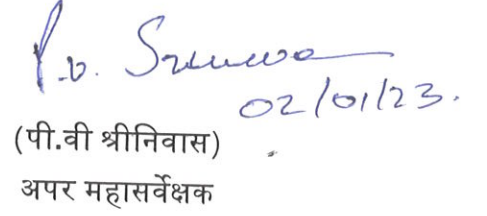 P.V. Srinivas
02/01/23.
(पी.वी श्रीनिवास)
अपर महासर्वेक्षक